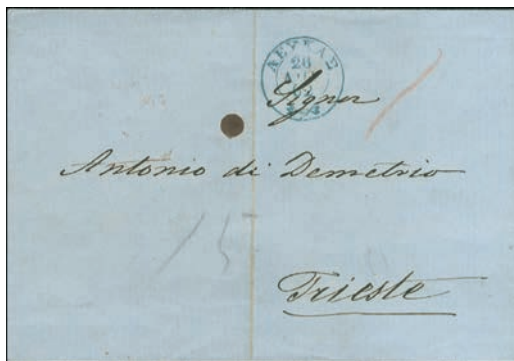 ΛΕΥΚΑΣ
26
62
Signor
Antonio di Demetrio
15
Trieste